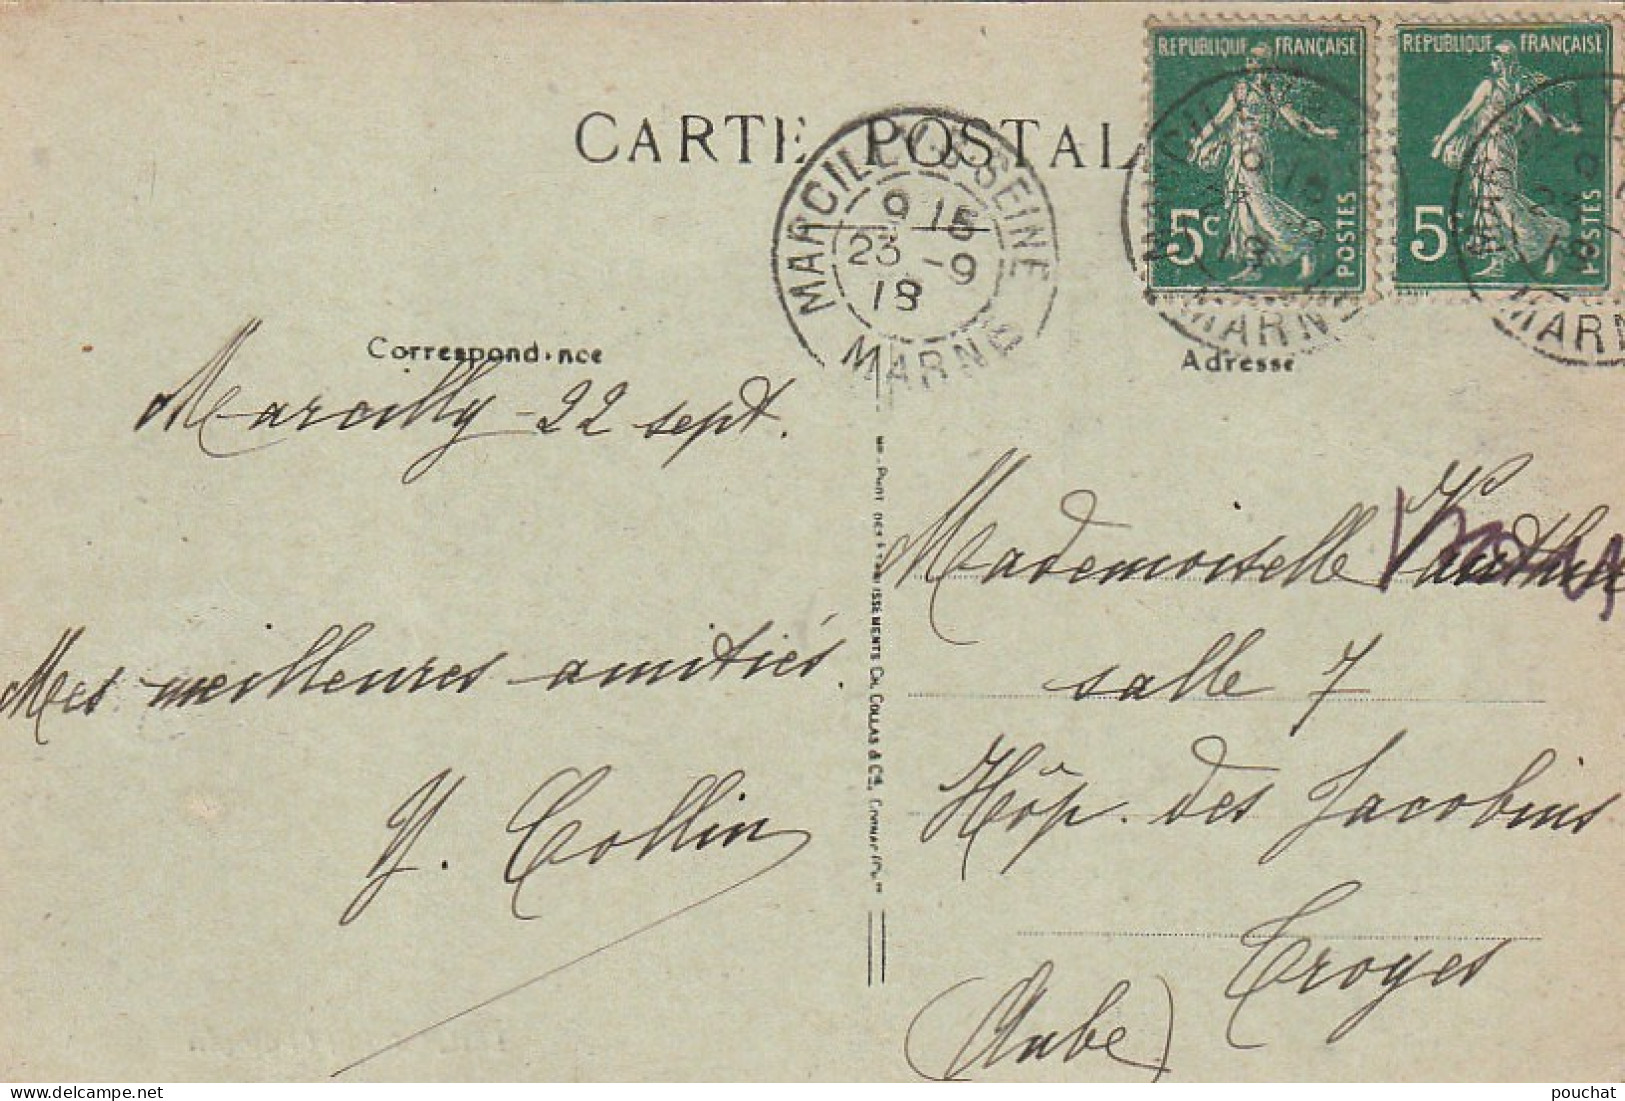 REPUBLIQUE FRANÇAISE
REPUBLIQUE FRANÇAISE
CARTE POSTALE
MARCILLY-S-SEINE
9 15
23 -9
18
MARNE
5c POSTES
5c POSTES
MARNE
MARNE
Correspondance
Adresse
Marcilly - 22 sept.
Mes meilleures amitiés.
Y. Collin
Mademoiselle
salle 7
Hôp. des Jacobins
Troyes
(Aube)
pouchat